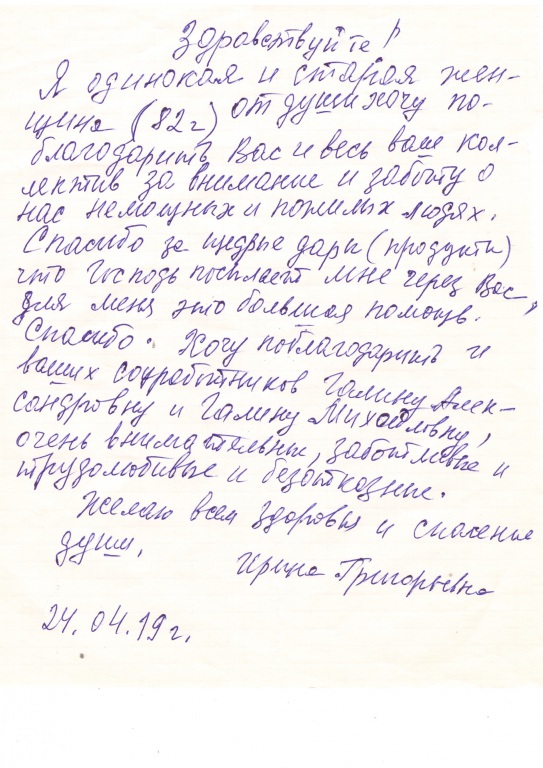 Здравствуйте!
Я одинокая и старая жен-
щина (82г) от души хочу по-
благодарить Вас и весь ваш кол-
лектив за внимание и заботу о
нас немощных и пожилых людях.
Спасибо за щедрые дары (продукты)
что Господь посылает мне через Вас,
для меня это большая помощь.
Спасибо. Хочу поблагодарить и
ваших сотработников Галину Алек-
сандровну и Галину Михайловну,
очень внимательные, заботливые и
трудолюбивые и безотказные.
Желаю всем здоровья и спасение
души.
Ирина Григорьевна
24.04.19г.